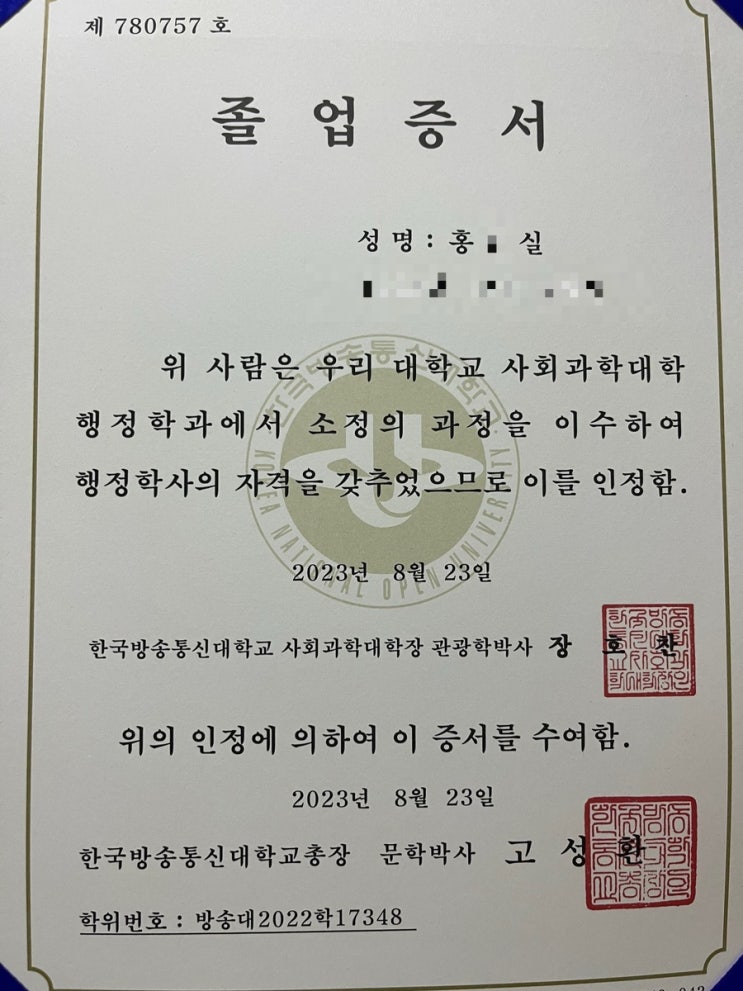 제 780757 호
졸업증서
성명 : 홍 실
위 사람은 우리 대학교 사회과학대학
행정학과에서 소정의 과정을 이수하여
행정학사의 자격을 갖추었으므로 이를 인정함.
한국방송통신대학교
KOREA NATIONAL OPEN UNIVERSITY
2023년 8월 23일
한국방송통신대학교 사회과학대학장 관광학박사 장 호 찬
위의 인정에 의하여 이 증서를 수여함.
2023년 8월 23일
한국방송통신대학교총장 문학박사 고 성 환
학위번호 : 방송대2022학17348